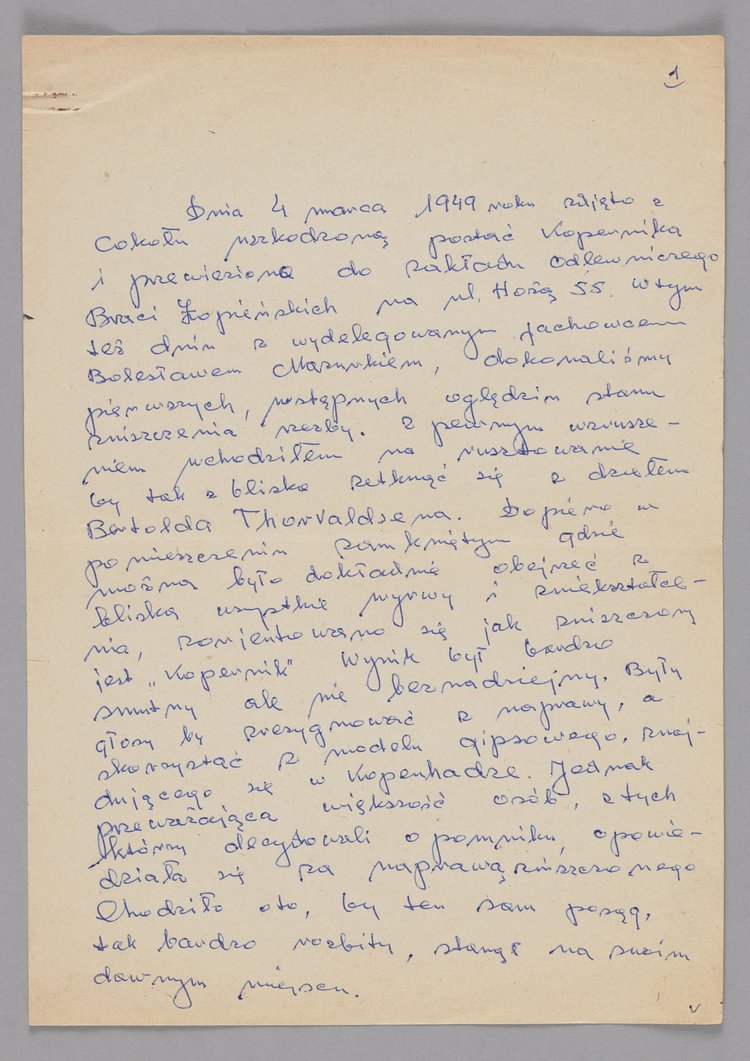 1
Dnia 4 marca 1949 roku zdjęto z
cokołu uszkodzoną postać Kopernika
i przewieziono do zakładu odlewniczego
Braci Łopieńskich na ul. Hożą 55. W tym
też dniu z wydelegowanym fachowcem
Bolesławem Mazurkiem, dokonaliśmy
pierwszych, wstępnych oględzin stanu
zniszczenia rzeźby. Z pewnym wzrusze-
niem wchodziłem na rusztowanie
by tak z bliska zetknąć się z dziełem
Bertolda Thorvaldsena. Dopiero w
pomieszczeniu zamkniętym gdzie
można było dokładnie obejrzeć z
bliska wszystkie wyrwy i zniekształce-
nia, zorientowano się jak zniszczony
jest „Kopernik" Wynik był bardzo
smutny ale nie beznadziejny. Były
głosy by zrezygnować z naprawy, a
skorzystać z modelu gipsowego, znaj-
dującego się w Kopenhadze. Jednak
przeważająca większość osób, z tych
którzy decydowali o pomniku, opowie-
działa się za naprawą zniszczonego
Chodziło oto, by ten sam posąg,
tak bardzo rozbity, stanął na swoim
dawnym miejscu.
v